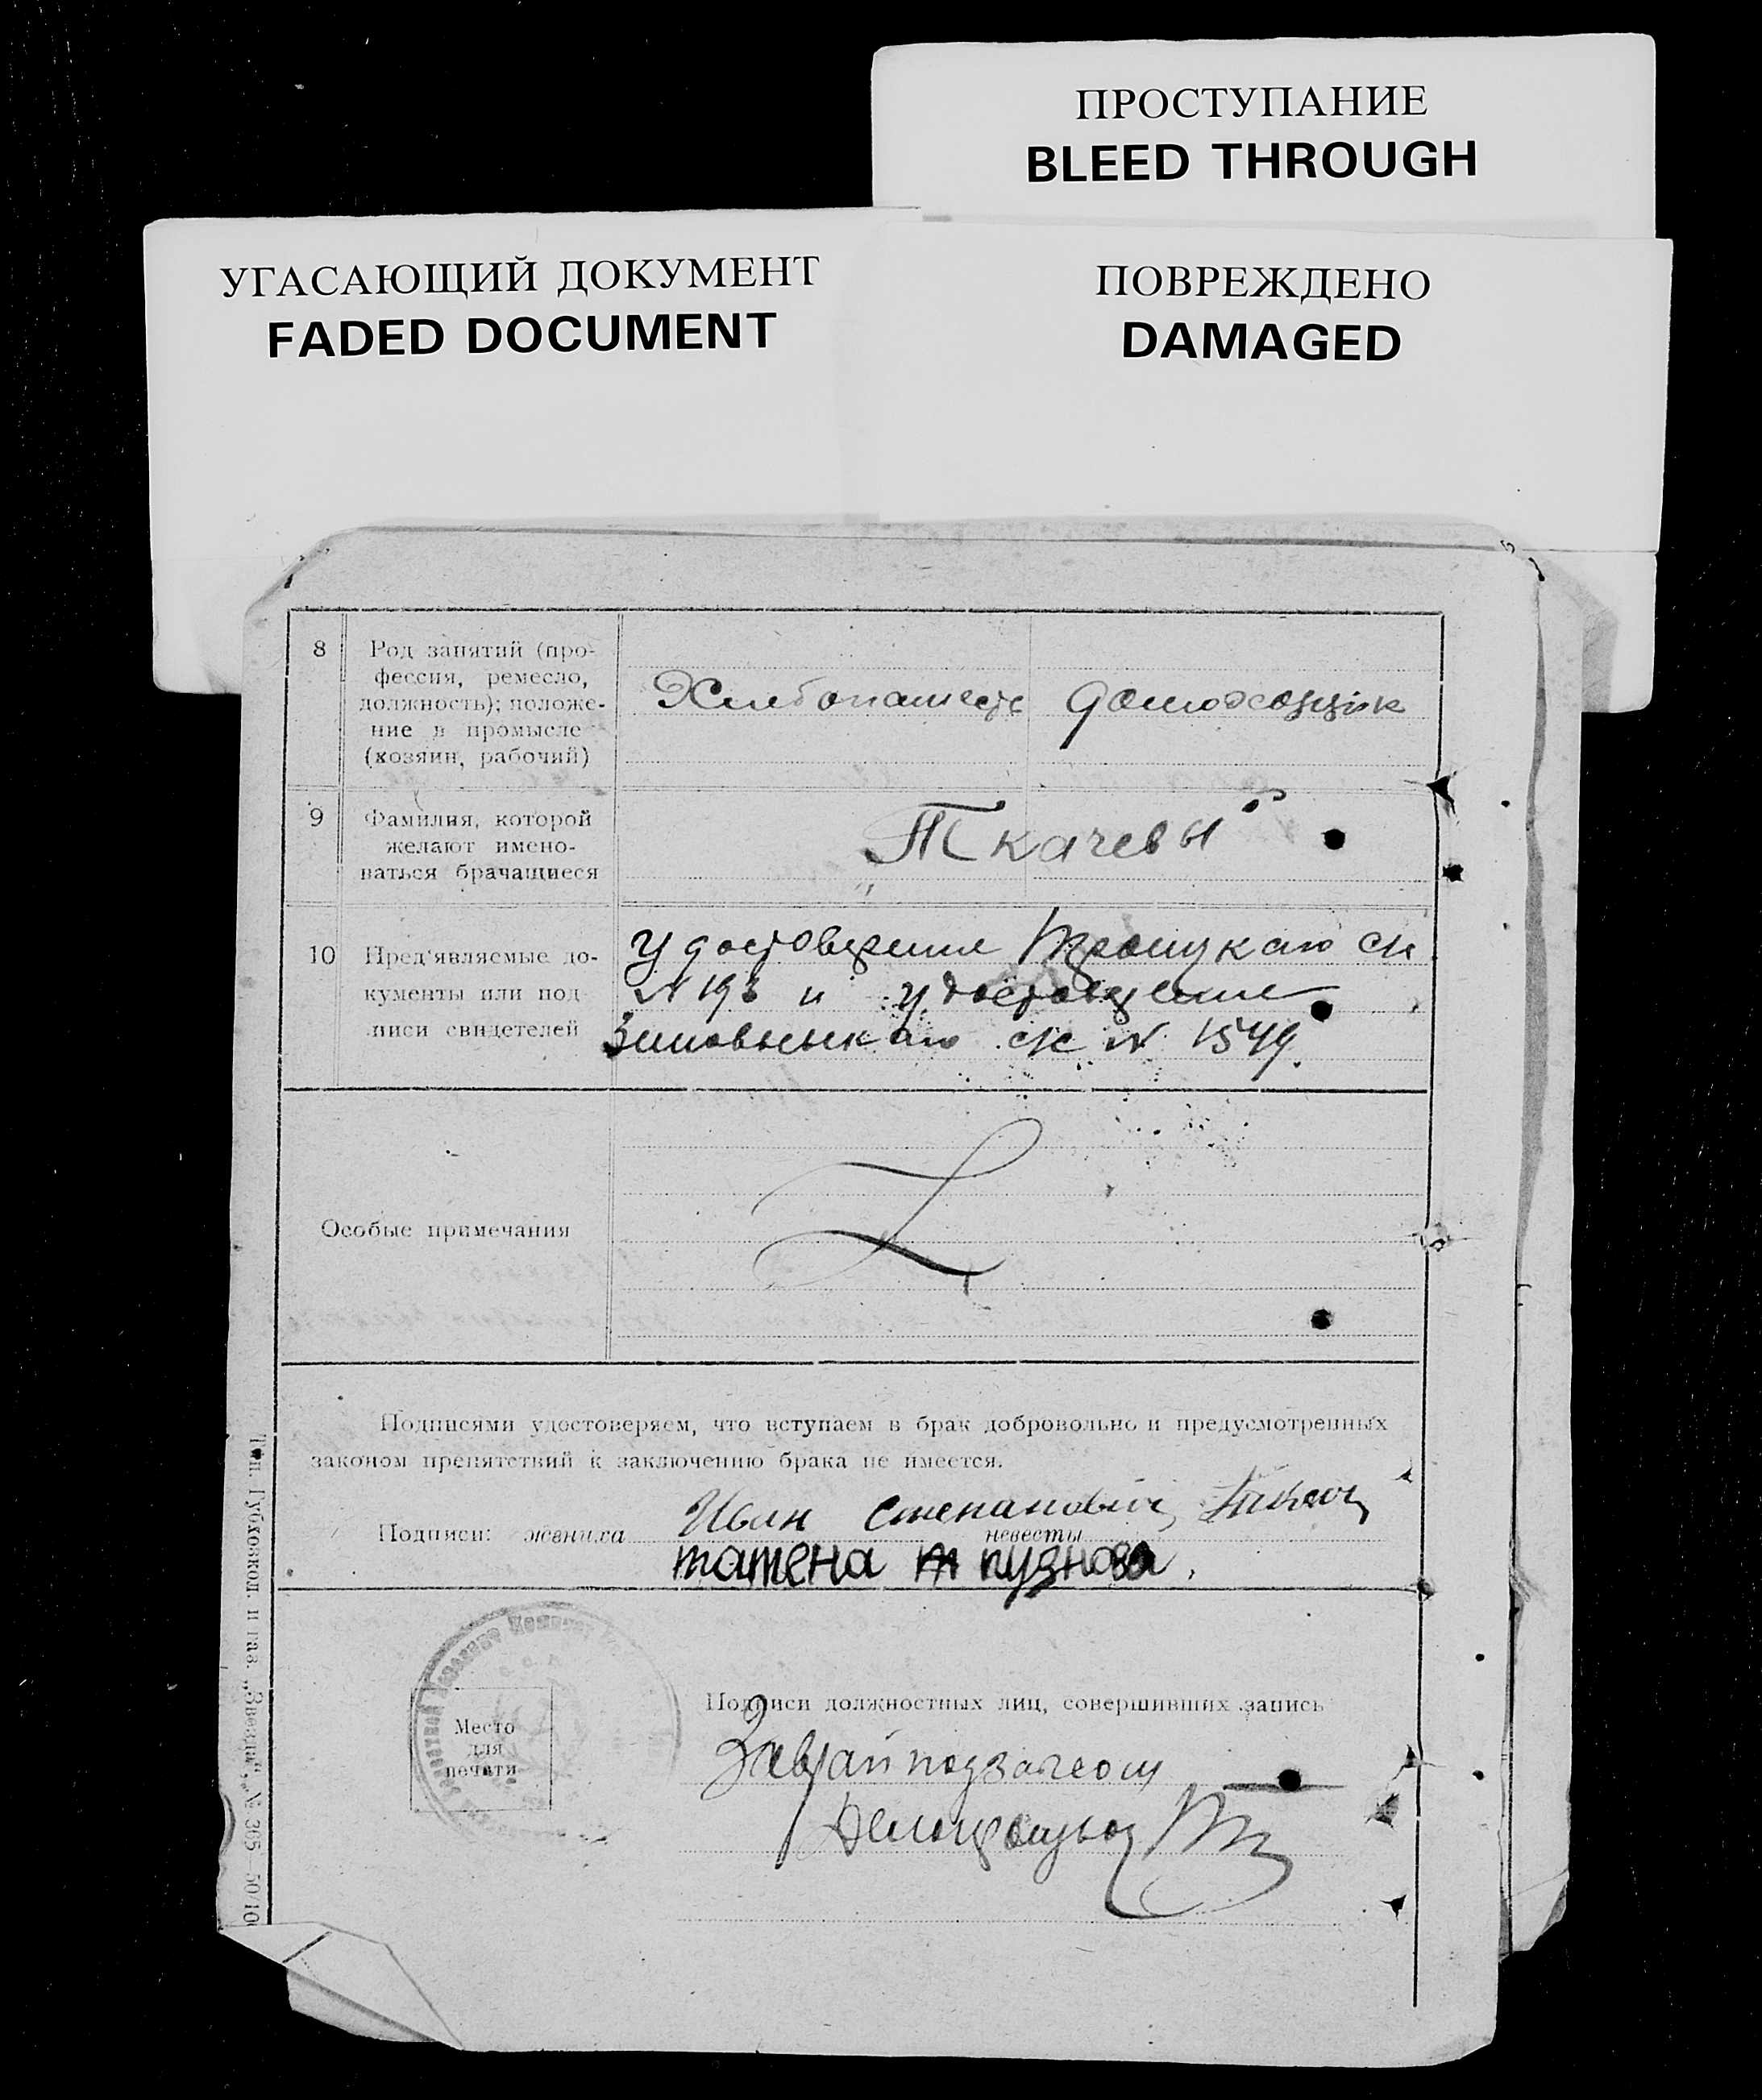 ПРОСТУПАНИЕ
BLEED THROUGH
УГАСАЮЩИЙ ДОКУМЕНТ
FADED DOCUMENT
ПОВРЕЖДЕНО
DAMAGED
8
Род занятий (про-
фессия, ремесло,
должность); положе-
ние в промысле
(хозяин, рабочий)
Хлебопашец
домохозяйк
9
Фамилия, которой
желают имено-
ваться брачащиеся
Ткачевы
10
Пред'являемые до-
кументы или под
писи свидетелей
Удостоверения Троицкаго с/с
N 193 и удостоверение
Зимовныкаго с/с N 1549.
Особые примечания
Подписями удостоверяем, что вступаем в брак добровольно и предусмотренных
законом препятствий к заключению брака не имеется.
Подписи: жениха Иван Степанович
невесты
татена пузнова
Место
для
печати
Подписи должностных лиц, совершивших запись
Заврайподзагсом
Тип. Губховкол. и газ. „Звезда", № 365—50/100